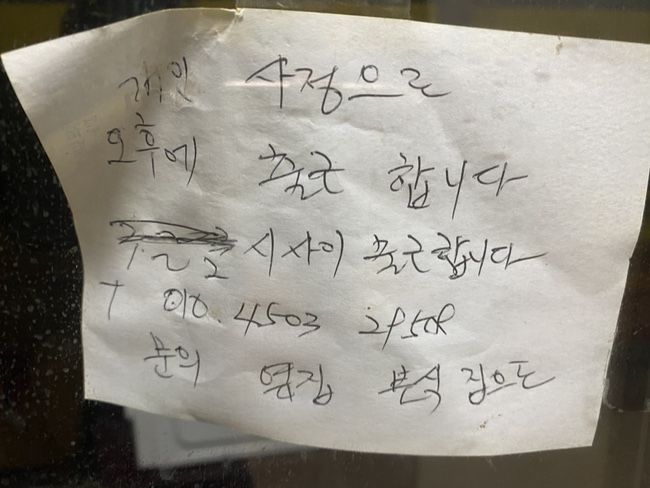 개인 사정으로
오후에 출근 합니다
시 사이 출근합니다
T 010. 4503
문의 옆집 분식 집으로